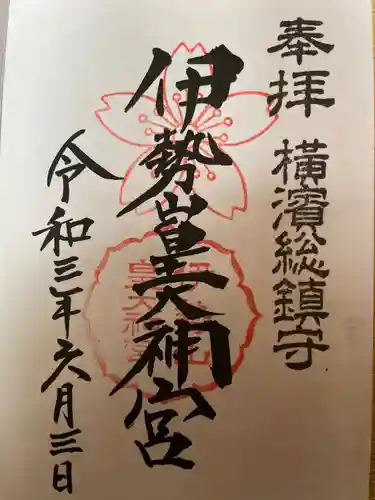 奉拝　橫濱総鎮守
伊勢山皇大神宮
令和三年六月三日
皇大神宮